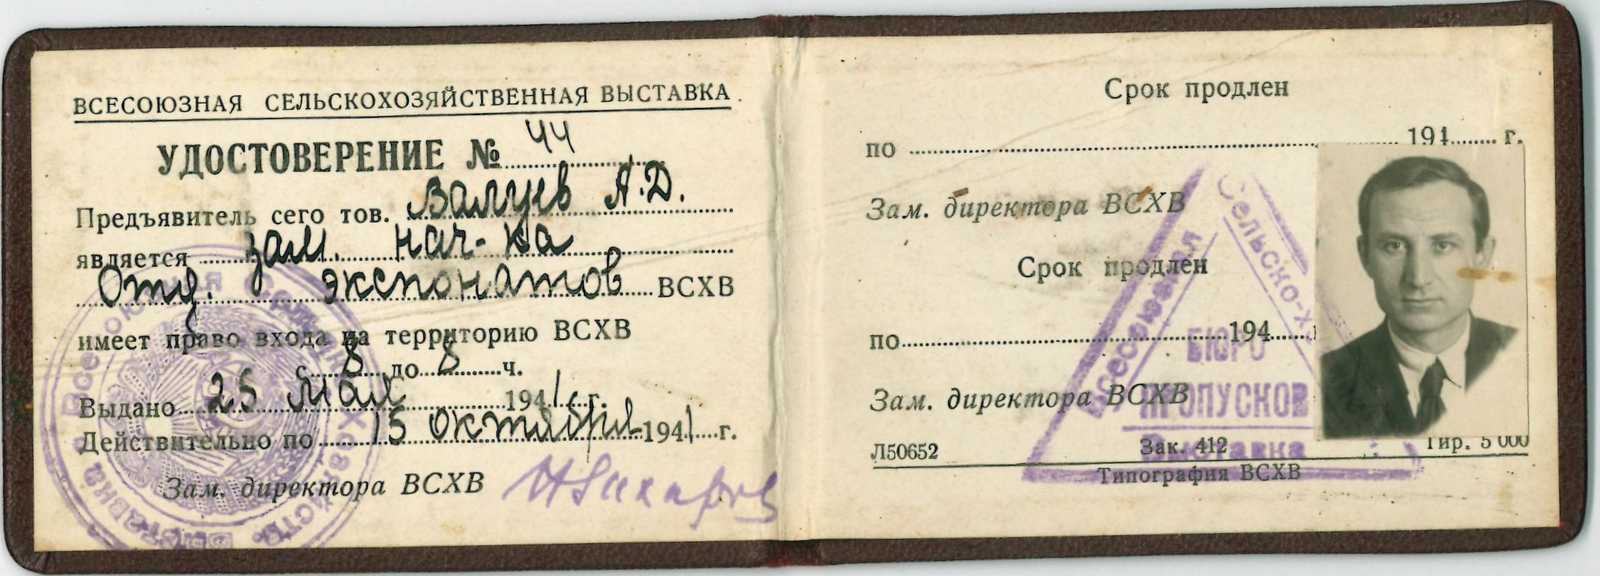 ВСЕСОЮЗНАЯ СЕЛЬСКОХОЗЯЙСТВЕННАЯ ВЫСТАВКА
УДОСТОВЕРЕНИЕ № 44
Предъявитель сего тов. Валуев А.Д.
является зам. нач-ка
Отд. экспонатов ВСХВ
имеет право входа на территорию ВСХВ
с 8 до 8 ч.
Выдано 25 Мая 1941 г.
Действительно по 15 октября 1941 г.
Зам. директора ВСХВ
Всесоюзная Сельско-Хозяйств. Выставка
Срок продлен
по 194 г.
Зам. директора ВСХВ
Срок продлен
по 194
Зам. директора ВСХВ
Всесоюзная Сельско-х
БЮРО
ПРОПУСКОВ
Выставка
Л50652 Зак. 412 Тир. 5 000
Типография ВСХВ